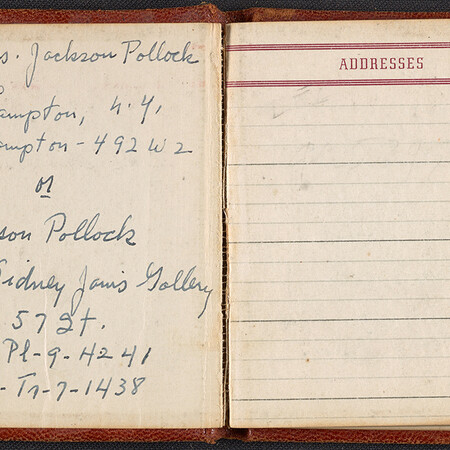 s. Jackson Pollock
ampton, N.Y.
ampton - 492 W 2
or
son Pollock
Sidney Janis Gallery
57 St.
Pl-9-4241
- Tr-7-1438
ADDRESSES